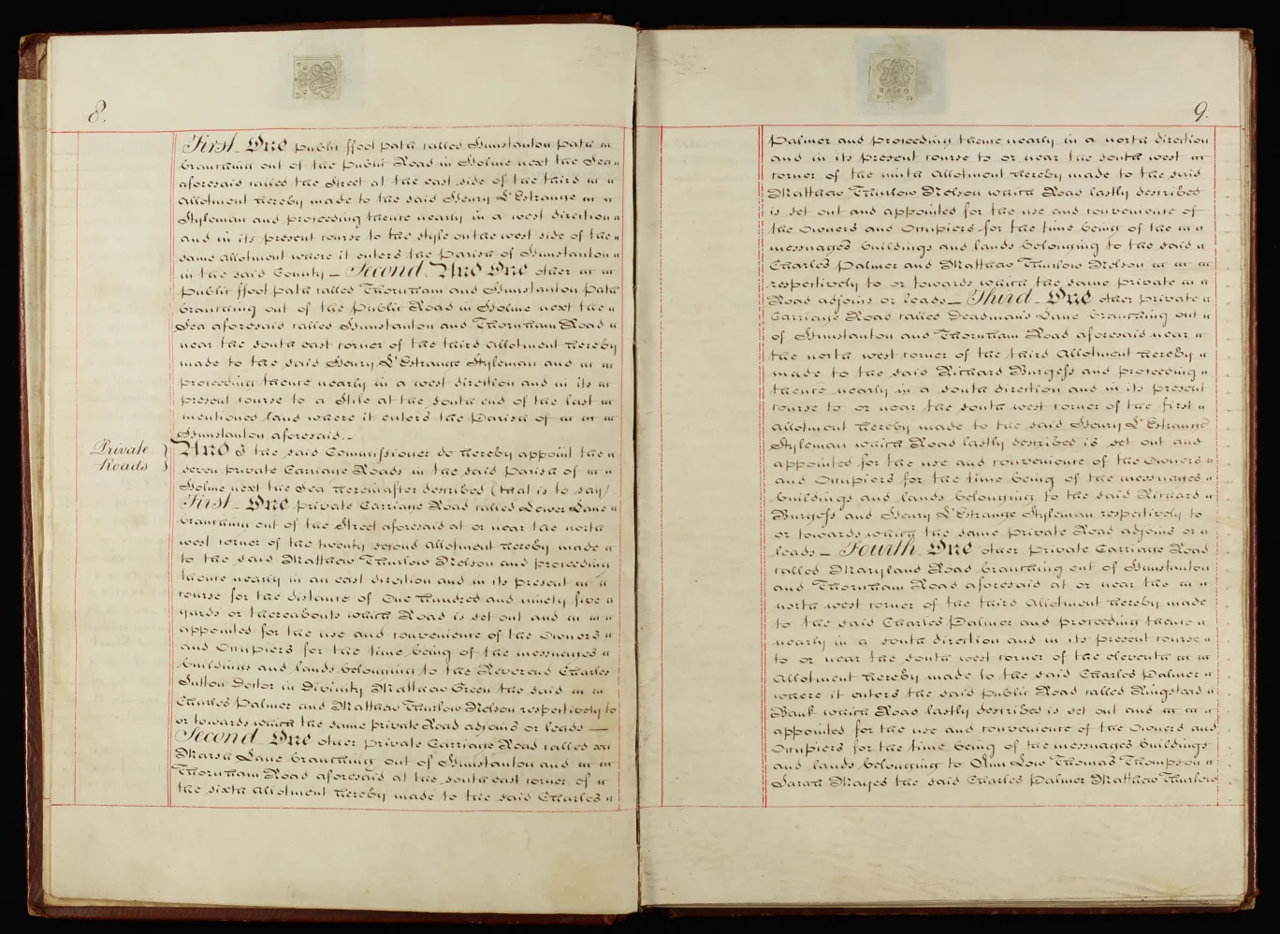 8.
First _ One public ffoot path called Hunstanton Path
branching out of the Public Road in Holme next the Sea
aforesaid called the Street at the east side of the third
allotment hereby made to the said Henry L'Estrange
Styleman and proceeding thence nearly in a west direction
and in its present course to the style on the west side of the
same allotment where it enters the Parish of Hunstanton
in the said County _ Second. And One other
public ffoot path called Thornham and Hunstanton Path
branching out of the Public Road in Holme next the
Sea aforesaid called Hunstanton and Thornham Road
near the south east corner of the third Allotment hereby
made to the said Henry L'Estrange Styleman and
proceeding thence nearly in a west direction and in its
present course to a Stile at the south end of the last
mentioned land where it enters the Parish of
Hunstanton aforesaid.
Private
Roads
And I the said Commissioner do hereby appoint the
seven private Carriage Roads in the said Parish of
Holme next the Sea hereinafter described (that is to say)
First _ One private Carriage Road called Lower Lane
branching out of the Street aforesaid at or near the north
west corner of the twenty second Allotment hereby made
to the said Matthew Thurlow Nelson and proceeding
thence nearly in an east direction and in its present
course for the distance of One hundred and ninety five
yards or thereabouts which Road is set out and
appointed for the use and convenience of the Owners
and Occupiers for the time being of the messuages
buildings and lands belonging to the Reverend Charles
Sutton Doctor in Divinity Matthew Green the said
Charles Palmer and Matthew Thurlow Nelson respectively to
or towards which the same private Road adjoins or leads _
Second _ One other private Carriage Road called
Marsh Lane branching out of Hunstanton and
Thornham Road aforesaid at the south east corner of
the sixth Allotment hereby made to the said Charles
9.
Palmer and proceeding thence nearly in a north direction
and in its present course to or near the south west
corner of the ninth Allotment hereby made to the said
Matthew Thurlow Nelson which Road lastly described
is set out and appointed for the use and convenience of
the Owners and Occupiers for the time being of the
messuages buildings and lands belonging to the said
Charles Palmer and Matthew Thurlow Nelson
respectively to or towards which the same private
Road adjoins or leads _ Third _ One other private
Carriage Road called Deadman's Lane branching out
of Hunstanton and Thornham Road aforesaid near
the north west corner of the third Allotment hereby
made to the said Richard Burgess and proceeding
thence nearly in a south direction and in its present
course to or near the south west corner of the first
Allotment hereby made to the said Henry L'Estrange
Styleman which Road lastly described is set out and
appointed for the use and convenience of the Owners
and Occupiers for the time being of the messuages
buildings and lands belonging to the said Richard
Burgess and Henry L'Estrange Styleman respectively to
or towards which the same private Road adjoins or
leads _ Fourth _ One other private Carriage Road
called Maryland Road branching out of Hunstanton
and Thornham Road aforesaid at or near the
north west corner of the third Allotment hereby made
to the said Charles Palmer and proceeding thence
nearly in a south direction and in its present course
to or near the south west corner of the eleventh
Allotment hereby made to the said Charles Palmer
where it enters the said public Road called Ringstead
Bank which Road lastly described is set out and
appointed for the use and convenience of the Owners and
Occupiers for the time being of the messuages buildings
and lands belonging to Ann Low Thomas Thompson
Sarah Mayes the said Charles Palmer Matthew Thurlow